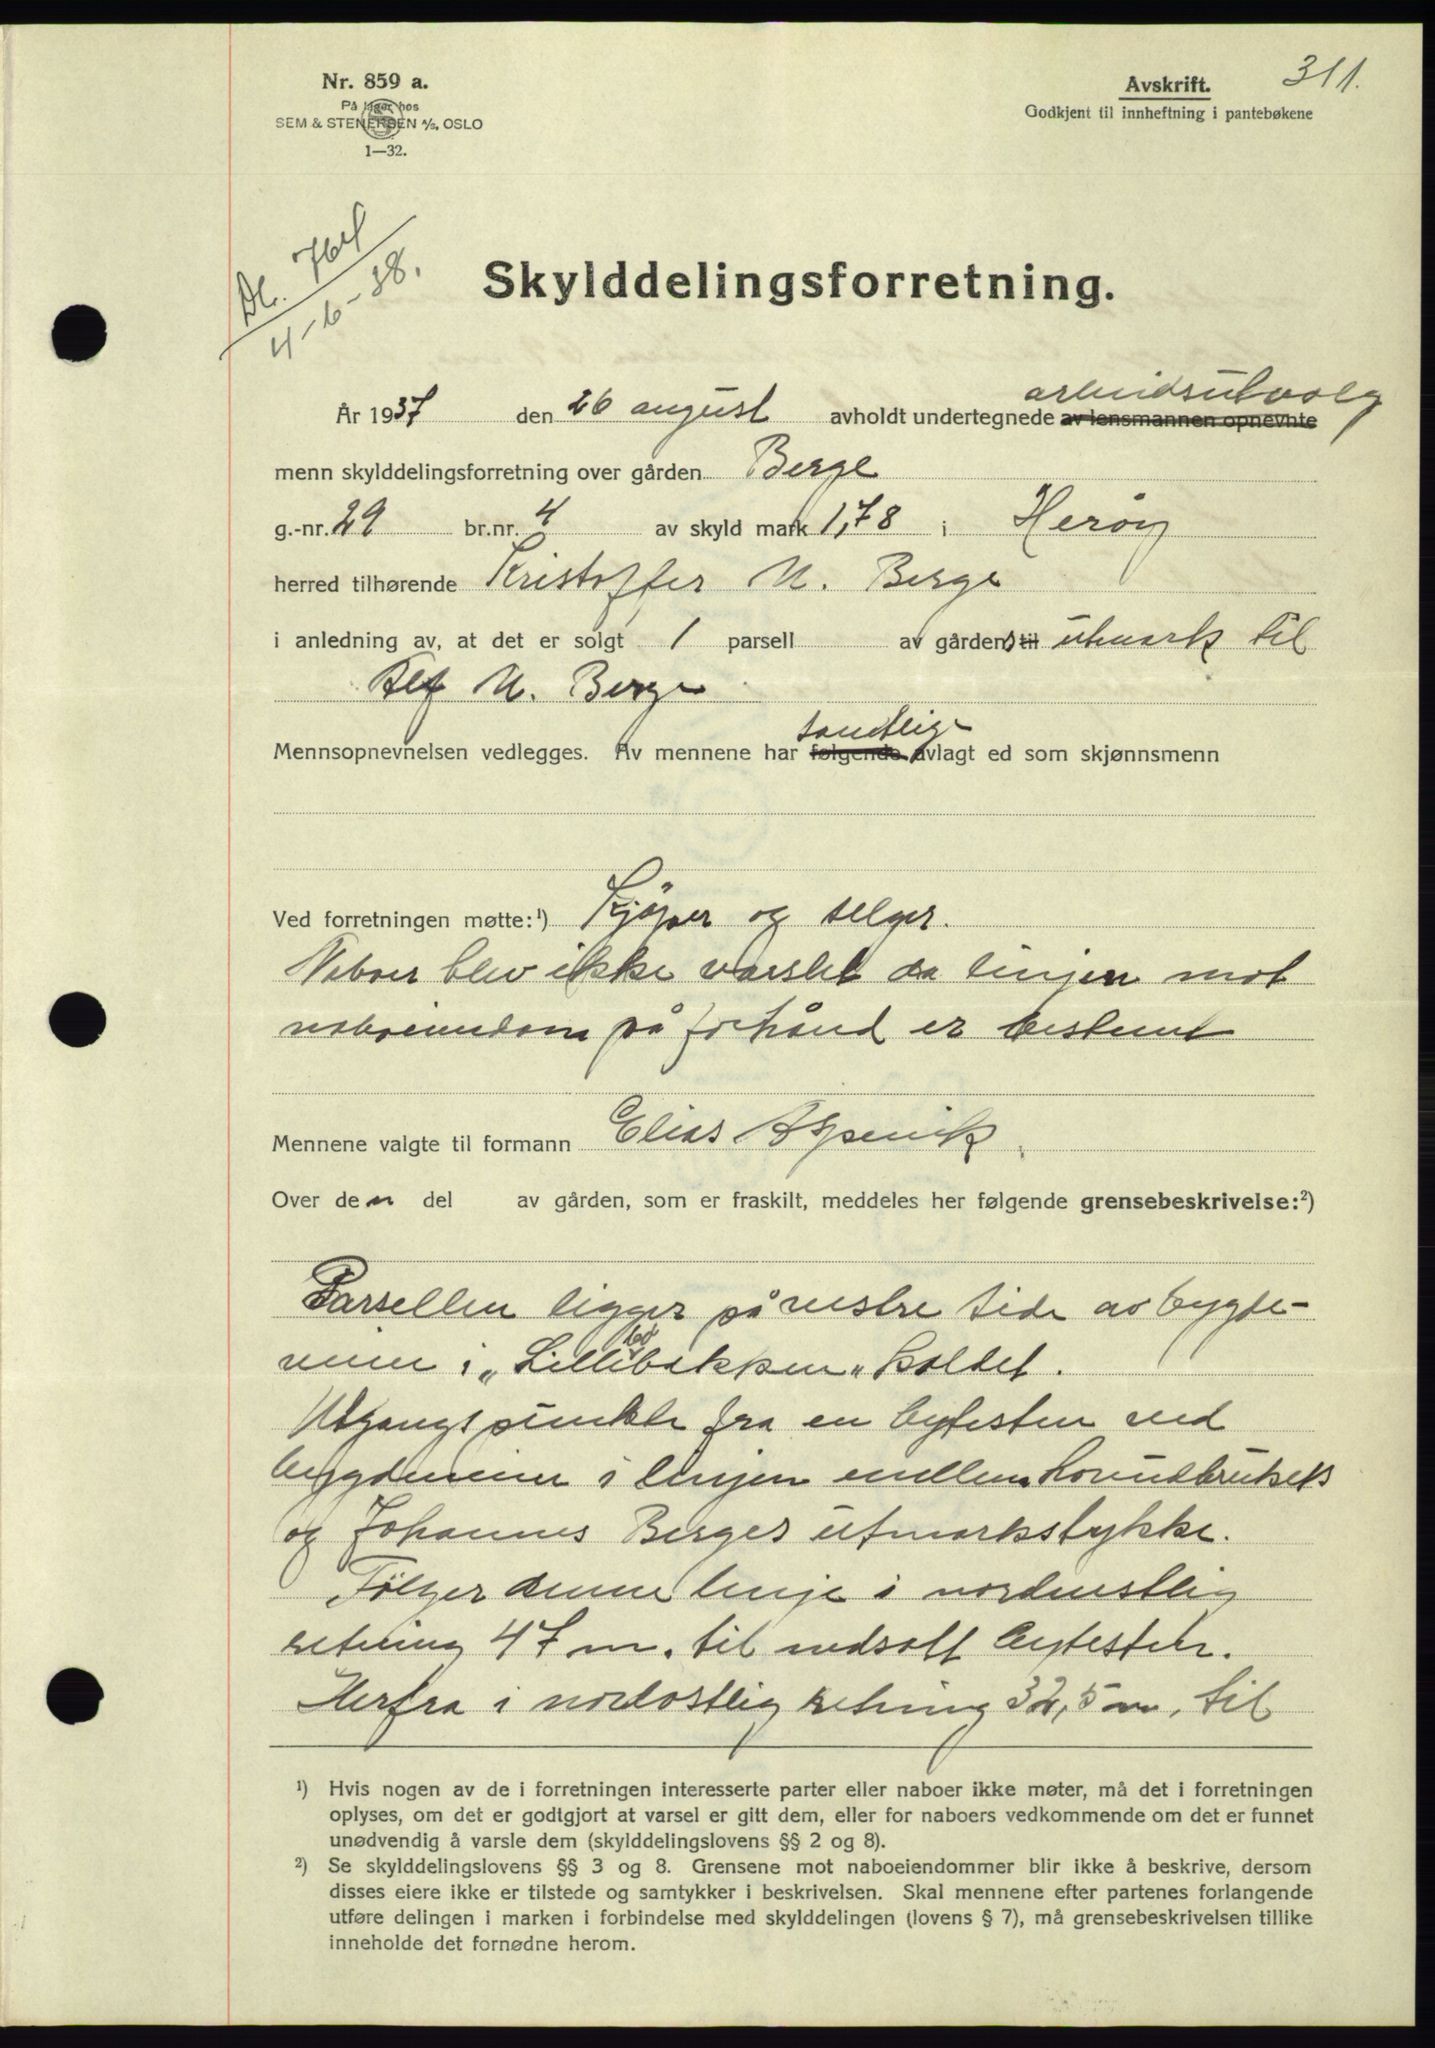 Nr. 859 a.
På lager hos
SEM & STENERSEN A/S, OSLO
1—32.
Avskrift.
Godkjent til innheftning i pantebøkene
311.
4-6-38.
Skylddelingsforretning.
arbeidsutvalg
År 1937 den 26 august avholdt undertegnede av lensmannen opnevnte
menn skylddelingsforretning over gården Berge
g.-nr. 29 br.nr. 4 av skyld mark 1,78 i Herøy
herred tilhørende Kristoffer N. Berge
i anledning av, at det er solgt 1 parsell av gårdens til utmark til
Alf N. Berge
samtlige
Mennsopnevnelsen vedlegges. Av mennene har følgende avlagt ed som skjønnsmenn
Ved forretningen møtte:¹) Kjøper og selger.
Naboer blev ikke varslet da linjen mot
naboeiendom på forhånd er bestemt
Mennene valgte til formann Elias Aspevik.
Over den del av gården, som er fraskilt, meddeles her følgende grensebeskrivelse:²)
Parsellen ligger på vestre side av bygde-
veien i „Lillebøbakken" kaldet.
Utgangspunkt fra en bytesten ved
bygdeveien i linjen mellem hovudbrukets
og Johannes Berges utmarkstykke.
Følger denne linje i nordvestlig
retning 47 m. til nedsatt bytesten.
Herfra i nordostlig retning 32,5 m. til
¹) Hvis nogen av de i forretningen interesserte parter eller naboer ikke møter, må det i forretningen
oplyses, om det er godtgjort at varsel er gitt dem, eller for naboers vedkommende om det er funnet
unødvendig å varsle dem (skylddelingslovens §§ 2 og 8).
²) Se skylddelingslovens §§ 3 og 8. Grensene mot naboeiendommer blir ikke å beskrive, dersom
disses eiere ikke er tilstede og samtykker i beskrivelsen. Skal mennene efter partenes forlangende
utføre delingen i marken i forbindelse med skylddelingen (lovens § 7), må grensebeskrivelsen tillike
inneholde det fornødne herom.